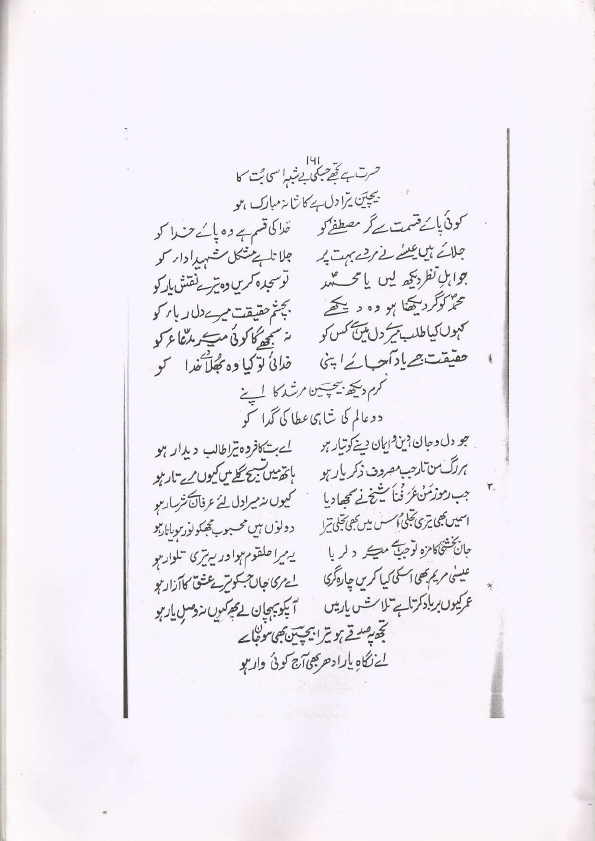 ۱۶۱
حسرت ہے تجھے جسکی بے شبہ اسی بُت کا
بیچینؔ ترا دل ہے کاشانہ مبارک ہو
کوئی پائے قسمت سے گر مصطفےٰؐ کو خدا کی قسم ہے وہ پائے خدا کو
جلائے ہیں عیسےٰ نے مردے بہت پر جلانا ہے مشکل شہیدِ ادا کو
جو اہلِ نظر دیکھ لیں یا محمدؐ تو سجدہ کریں وہ ترے نقشِ پا کو
محمدؐ کو گر دیکھنا ہو وہ دیکھے بچشمِ حقیقت میرے دل ربا کو
کہوں کیا طلب میرے دل میں ہے کس کو نہ سمجھے گا کوئی میرے مدّعا کو
حقیقت جسے یاد آجائے اپنی خدائی تو کیا وہ بھُلا دے خدا کو
کرم دیکھ بیچینؔ مرشد کا اپنے
دو عالم کی شاہی عطا کی گدا کو
جو دل و جان دین و ایمان دینے کو تیار ہو اے بت کافر وہ ترا طالب دیدار ہو
ہر رگ من تار جب مصروف ذکر یار ہو ہاتھ میں تسبیح گلے میں کیوں مرے تار ہو
جب رموز مَنْ عَرَفْنَا شیخ نے سمجھا دیا کیوں نہ میرا دل لئے عرفان کے سرشار ہو
اسمیں بھی تیری تجلی اُس میں بھی تجلی تیرا دونوں ہیں محبوب مجھکو نور ہو یا نار ہو
جان بخشی کا مزہ تو جب ہے میرے دلربا یہ میرا حلقوم ہو اور یہ تیری تلوار ہو
عیسیٰ مریم بھی اسکی کیا کریں چارہ گری اے مری جاں جسکو تیرے عشق کا آزار ہو
عمر کیوں برباد کرتا ہے تلاشِ یار میں آپکو پہچان لے پھر کیوں نہ وصلِ یار ہو
تجھ پہ صدقے ہو ترا بیچینؔ بھی سو جان سے
اے نگاہِ یار ادھر بھی آج کوئی وار ہو